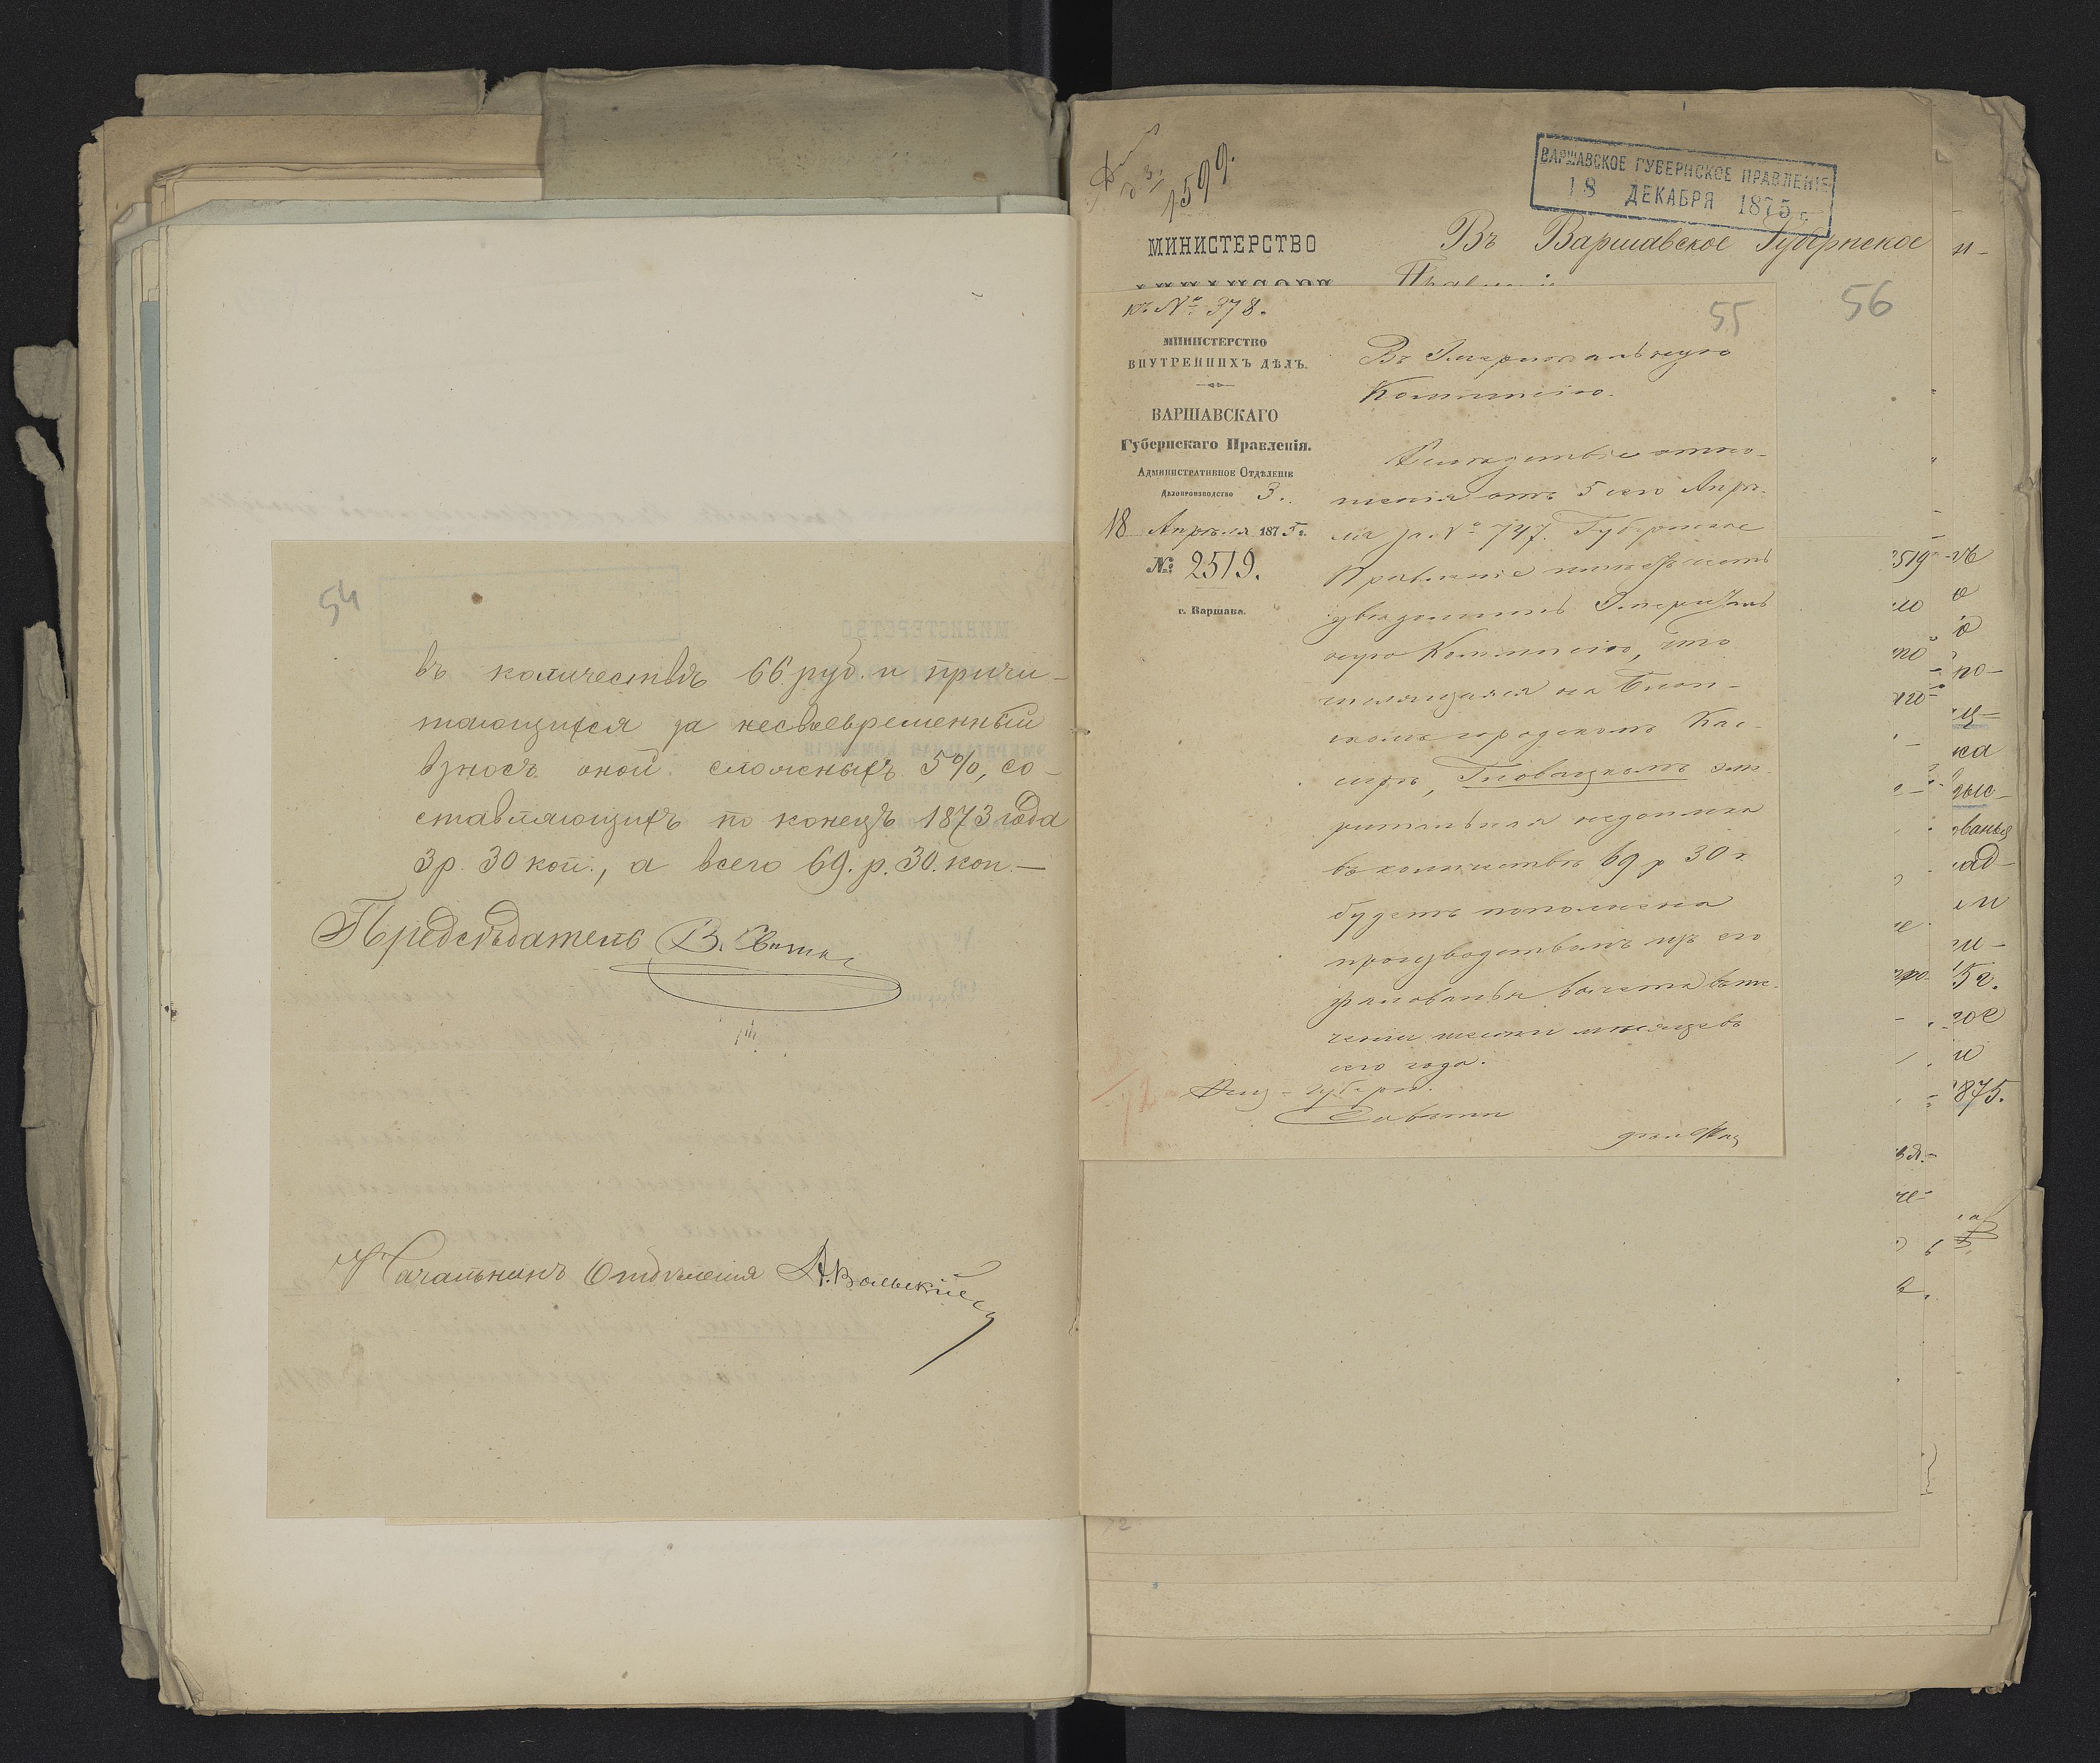 54
въ количествѣ 66 руб. и причи-
тающихся за несвоевременный
взносъ оной сложныхъ 5%, со-
ставляющихъ по конецъ 1873 года
3 р. 30 коп., а всего 69. р. 30. коп.—
Предсѣдатель В.
Начальникъ Отдѣленія А. Вольскій
1599.
ВАРШАВСКОЕ ГУБЕРНСКОЕ ПРАВЛЕНІЕ
18 ДЕКАБРЯ 1875 г.
МИНИСТЕРСТВО
Въ Варшавское Губернское
56
къ № 378.
55
МИНИСТЕРСТВО
ВНУТРЕННИХЪ ДѢЛЪ.
ВАРШАВСКАГО
Губернскаго Правленія.
Административное Отдѣленіе
Дѣлопроизводство 3.
18 Апрѣля 1875 г.
№ 2519.
г. Варшава.
Въ Эмеритальную
Коммисію.
Вслѣдствіе отно-
шенія отъ 5 сего Апрѣ-
ля за № 747. Губернское
Правленіе имѣетъ честь
увѣдомить Эмериталь
ную Коммисію, что
числящаяся на Блон-
скомъ городскомъ Кас-
сирѣ, Гловацкомъ эме-
ритальная недоимка
въ количествѣ 69 р 30 к
будетъ пополнена
производствомъ изъ его
жалованья вычета въ те-
ченіи шести мѣсяцевъ
сего года.
Виц-Губерн.
Совѣтн